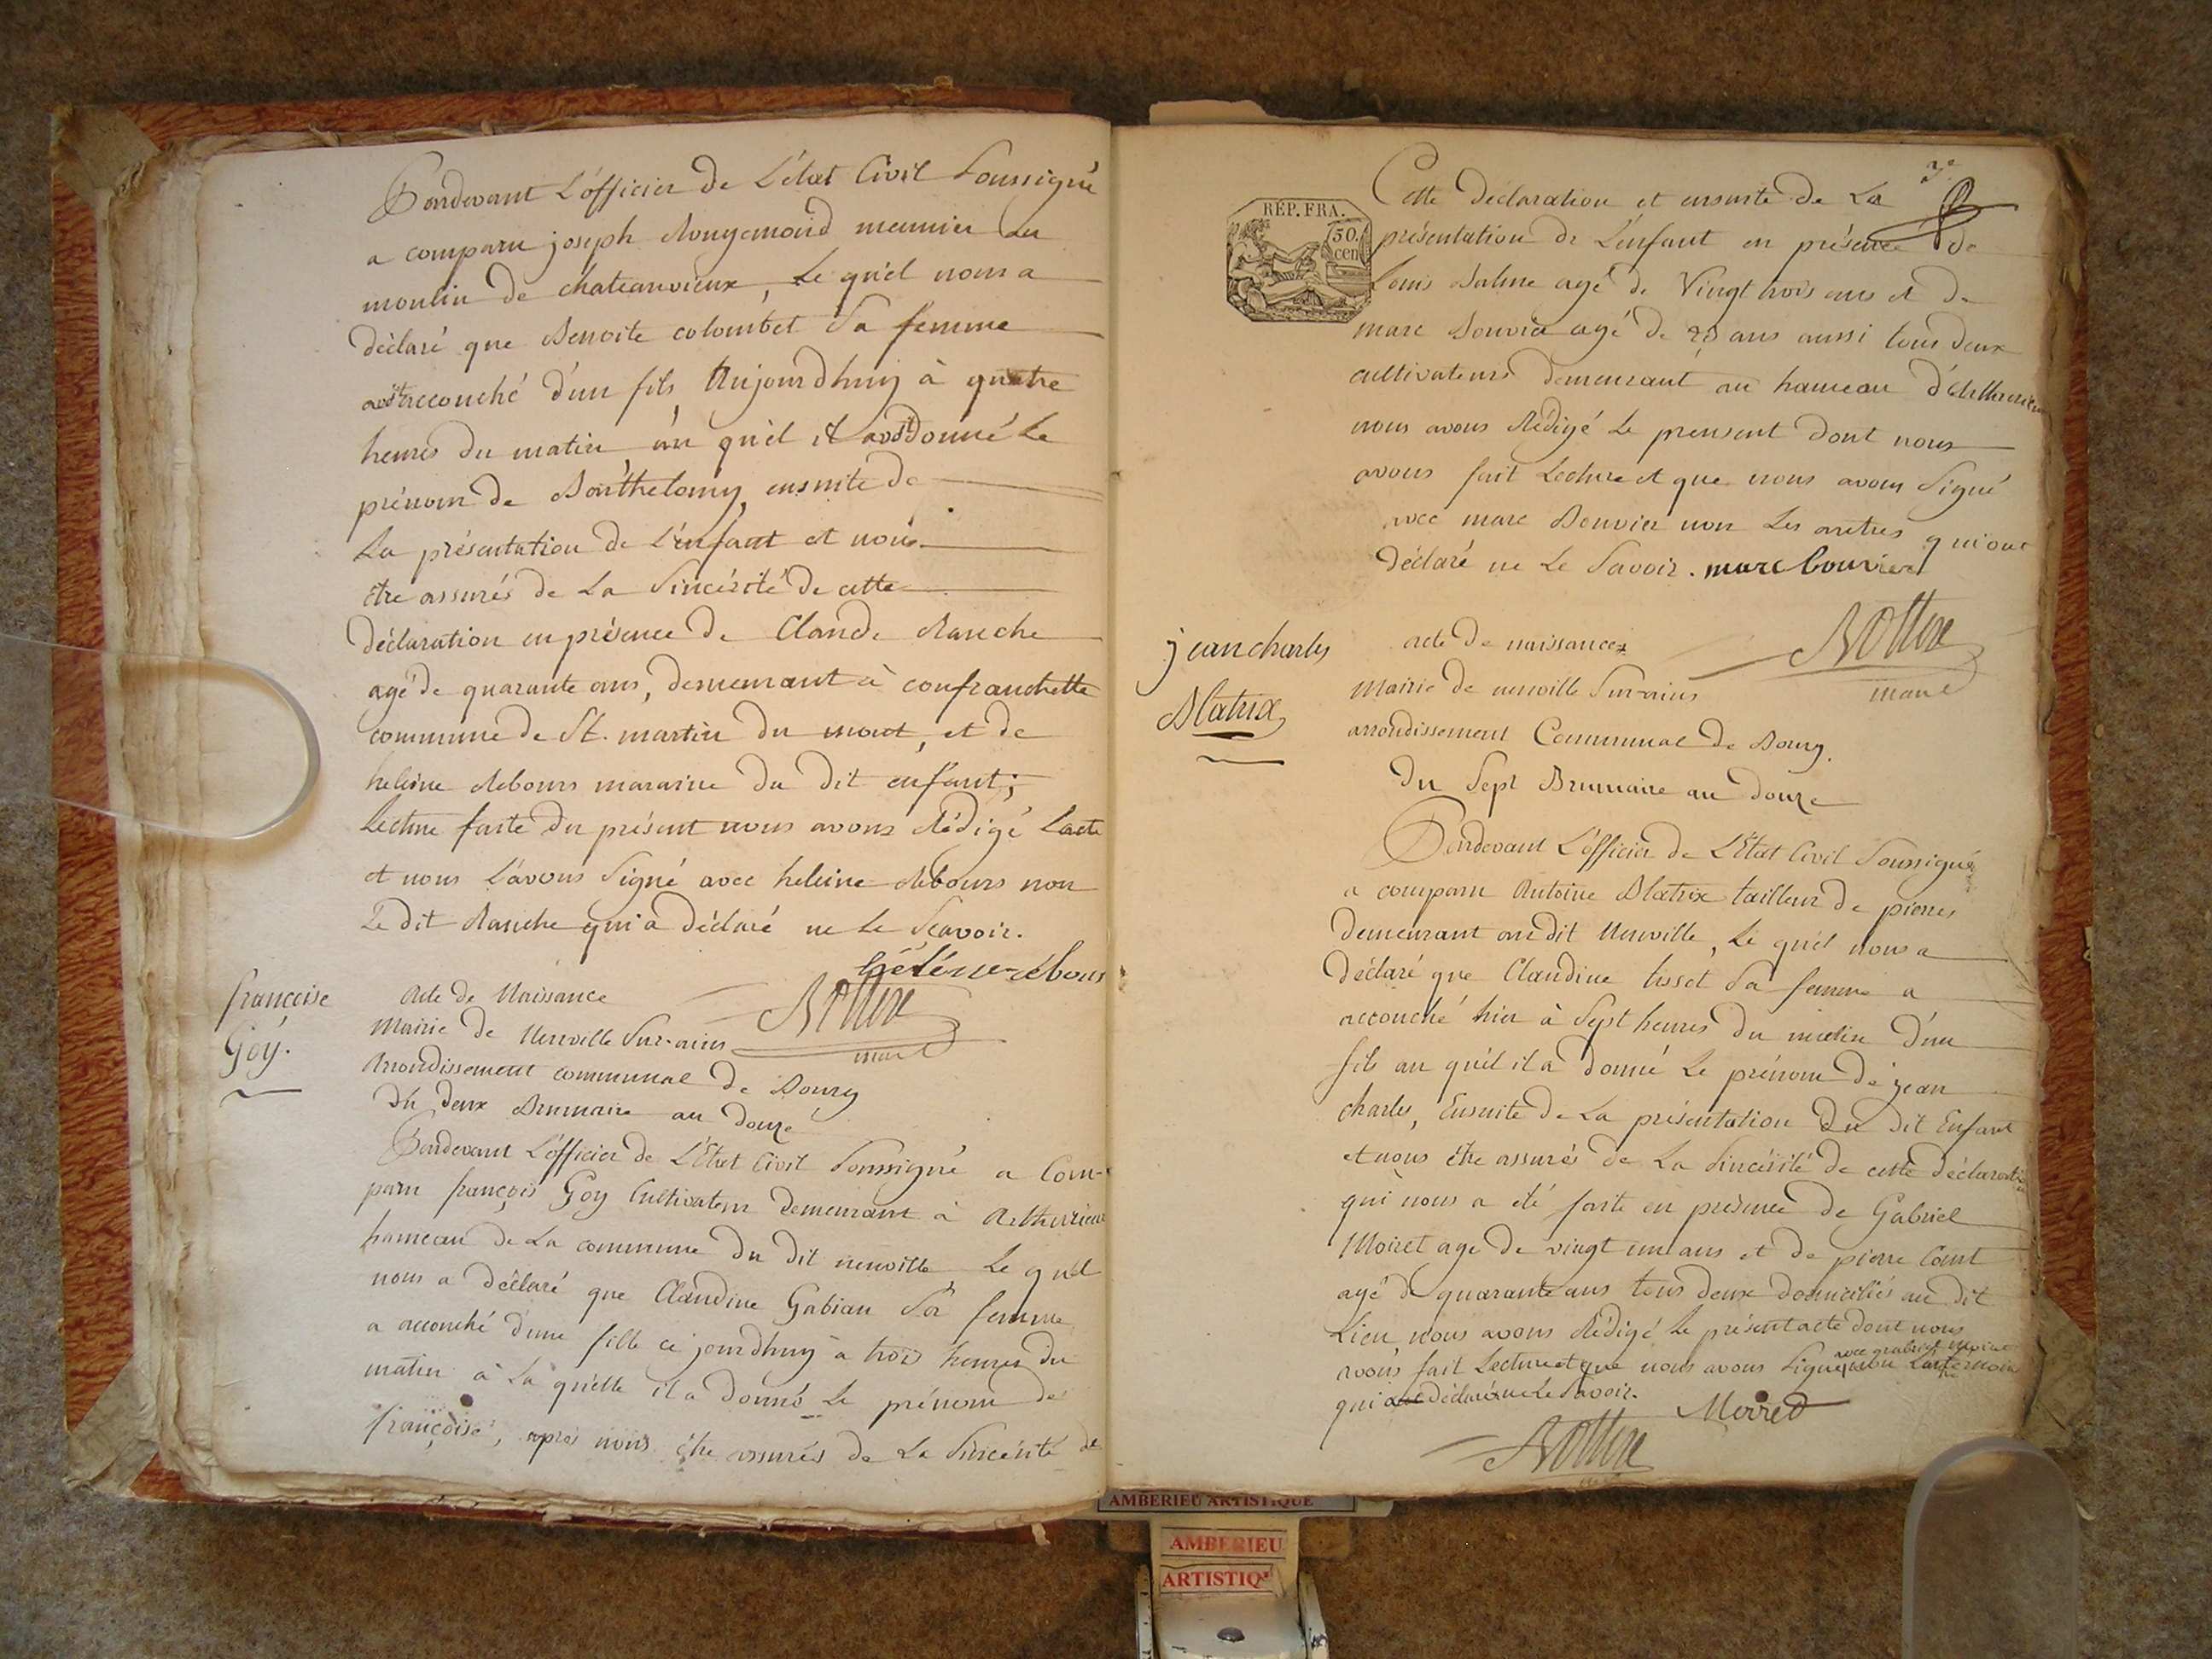 Pardevant L'officier de L'état Civil Soussigné
a comparu joseph Rougemond meunier au
moulin de chateauvieux, Le quel nous a
déclaré que Benoite colombet Sa femme
accouché d'un fils Aujourdhuy à quatre
heures du matin, au quel il donné Le
prénom de Barthelemy, ensuite de
La présentation de L'enfant et nous
être assurés de La Sincérité de cette
déclaration en présence de Claude Ranche
agé de quarante ans, demeurant à confranchette
commune de St. martin du mont, et de
heleine Rebours maraine du dit enfant;
Lecture faite du présent nous avons Rédigé L'acte
et nous L'avons Signé avec heleine Rebours non
Le dit Ranche qui a déclaré ne Le Scavoir.
hélène rebours
françoise
Goy.
Acte de Naissance
Mairie de Neuville Sur-ains
maire
Arrondissement communal de Bourg
du deux Brumaire an douze
Pardevant L'officier de L'Etat Civil Soussigné a Com-
paru françois Goy Cultivateur demeurant à
hameau de La commune du dit neuville Le quel
nous a déclaré que Claudine Gabian Sa femme
a accouché d'une fille ce jourdhuy à trois heures du
matin à La quelle il a donné Le prénom de
françoise, après nous être assurés de La Sincérité de
3e
RÉP. FRA.
50.
cen
Cette déclaration et ensuite de La
présentation de L'enfant en présence de
Louis Balme agé de Vingt trois ans et de
marc Bouvier agé de ans aussi tous deux
cultivateurs demeurant au hameau
nous avons Rédigé Le present dont nous
avons fait Lecture et que nous avons Signé
avec marc Bouvier non Les autres qui ont
déclaré ne Le Savoir. marc bouvier
jean charles
Blatrix
acte de naissance
Mairie de neuville Sur-ains
maire
arrondissement Communal de Bourg.
du Sept Brumaire an douze
Pardevant L'officier de L'Etat Civil Soussigné
a comparu Antoine Blatrix tailleur de pierres
demeurant au dit Neuville, Le quel nous a
déclaré que Claudine tissot Sa femme a
accouché hier à Sept heures du matin d'un
fils au quel il a donné Le prénom de jean
charles, Ensuite de La présentation du dit Enfant
et nous être assurés de La Sincérité de cette déclaration
qui nous a été faite en présence de Gabriel
Moiret agé de vingt un ans et de pierre Cont
agé de quarante ans tous deux domiciliés au dit
Lieu nous avons Rédigé Le présent acte dont nous
avec gabriel Moiret
avons fait Lecture et que nous avons Signé non L'autre temoin
qui a déclaré ne Le Savoir.
Moired
AMBERIEU ARTISTIQUE
AMBERIEU
ARTISTIQ